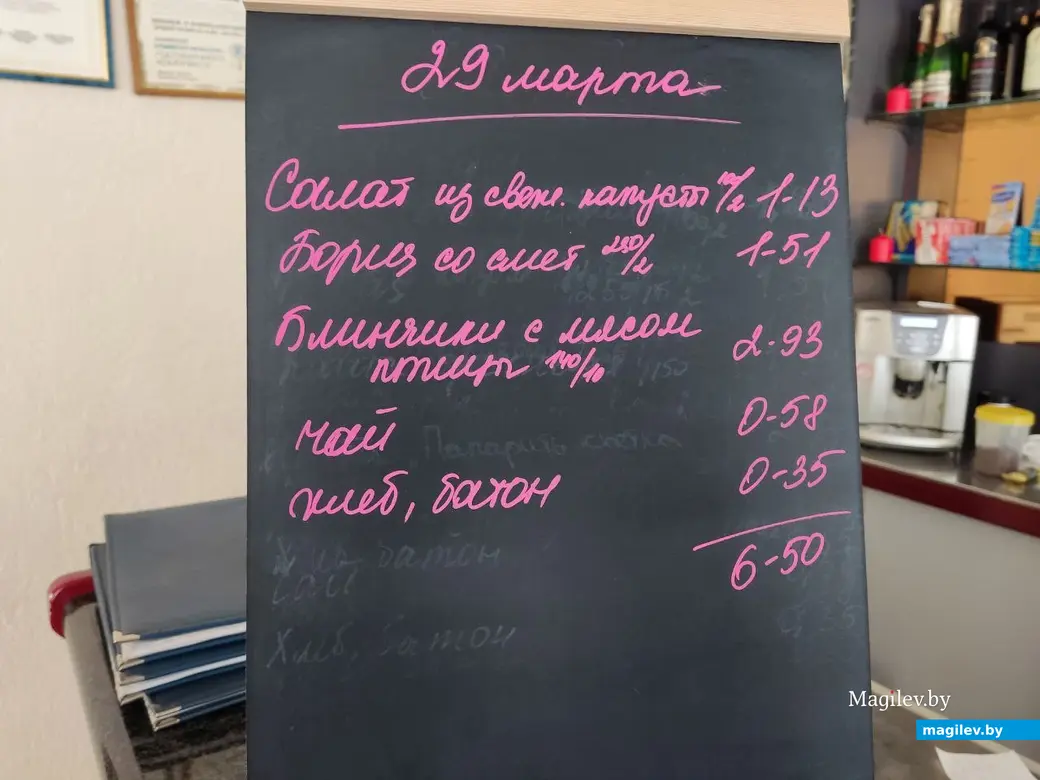 29 марта
Салат из свеж. капусты 100/2 1-13
Борщ со смет 250/2 1-51
Блинчики с мясом
птицы 140/10 2-93
чай 0-58
хлеб, батон 0-35
6-50
батон
Чай
Хлеб, батон 0,35
Magilev.by
magilev.by